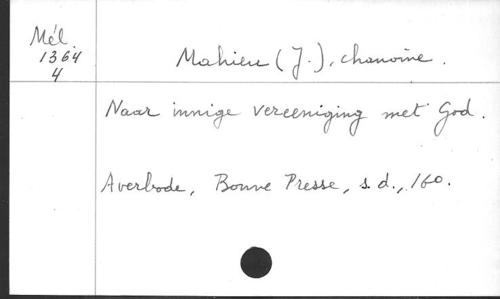 Mél.
1364
4
Mahieu (J.), chanoine.
Naar innige vereeniging met God.
Averbode, Bonne Presse, s.d., 160.